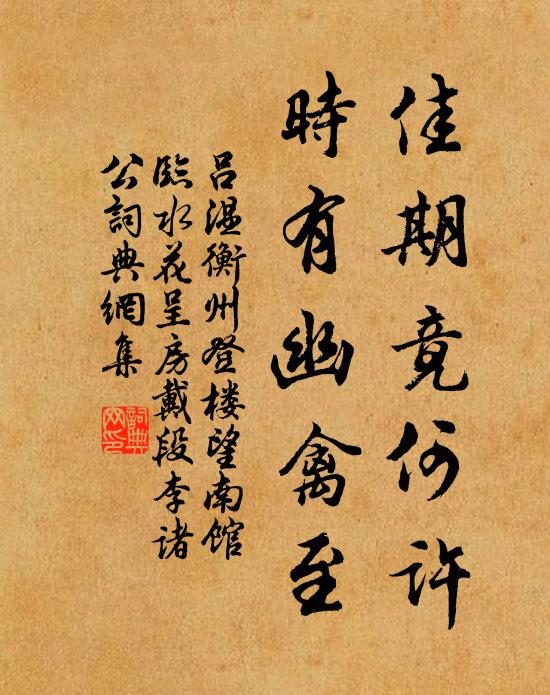 佳期竟何許
時有幽禽至
吕温衡州登楼望南馆
臨水花呈房戴段李诸
公詞典網集
詞典网印